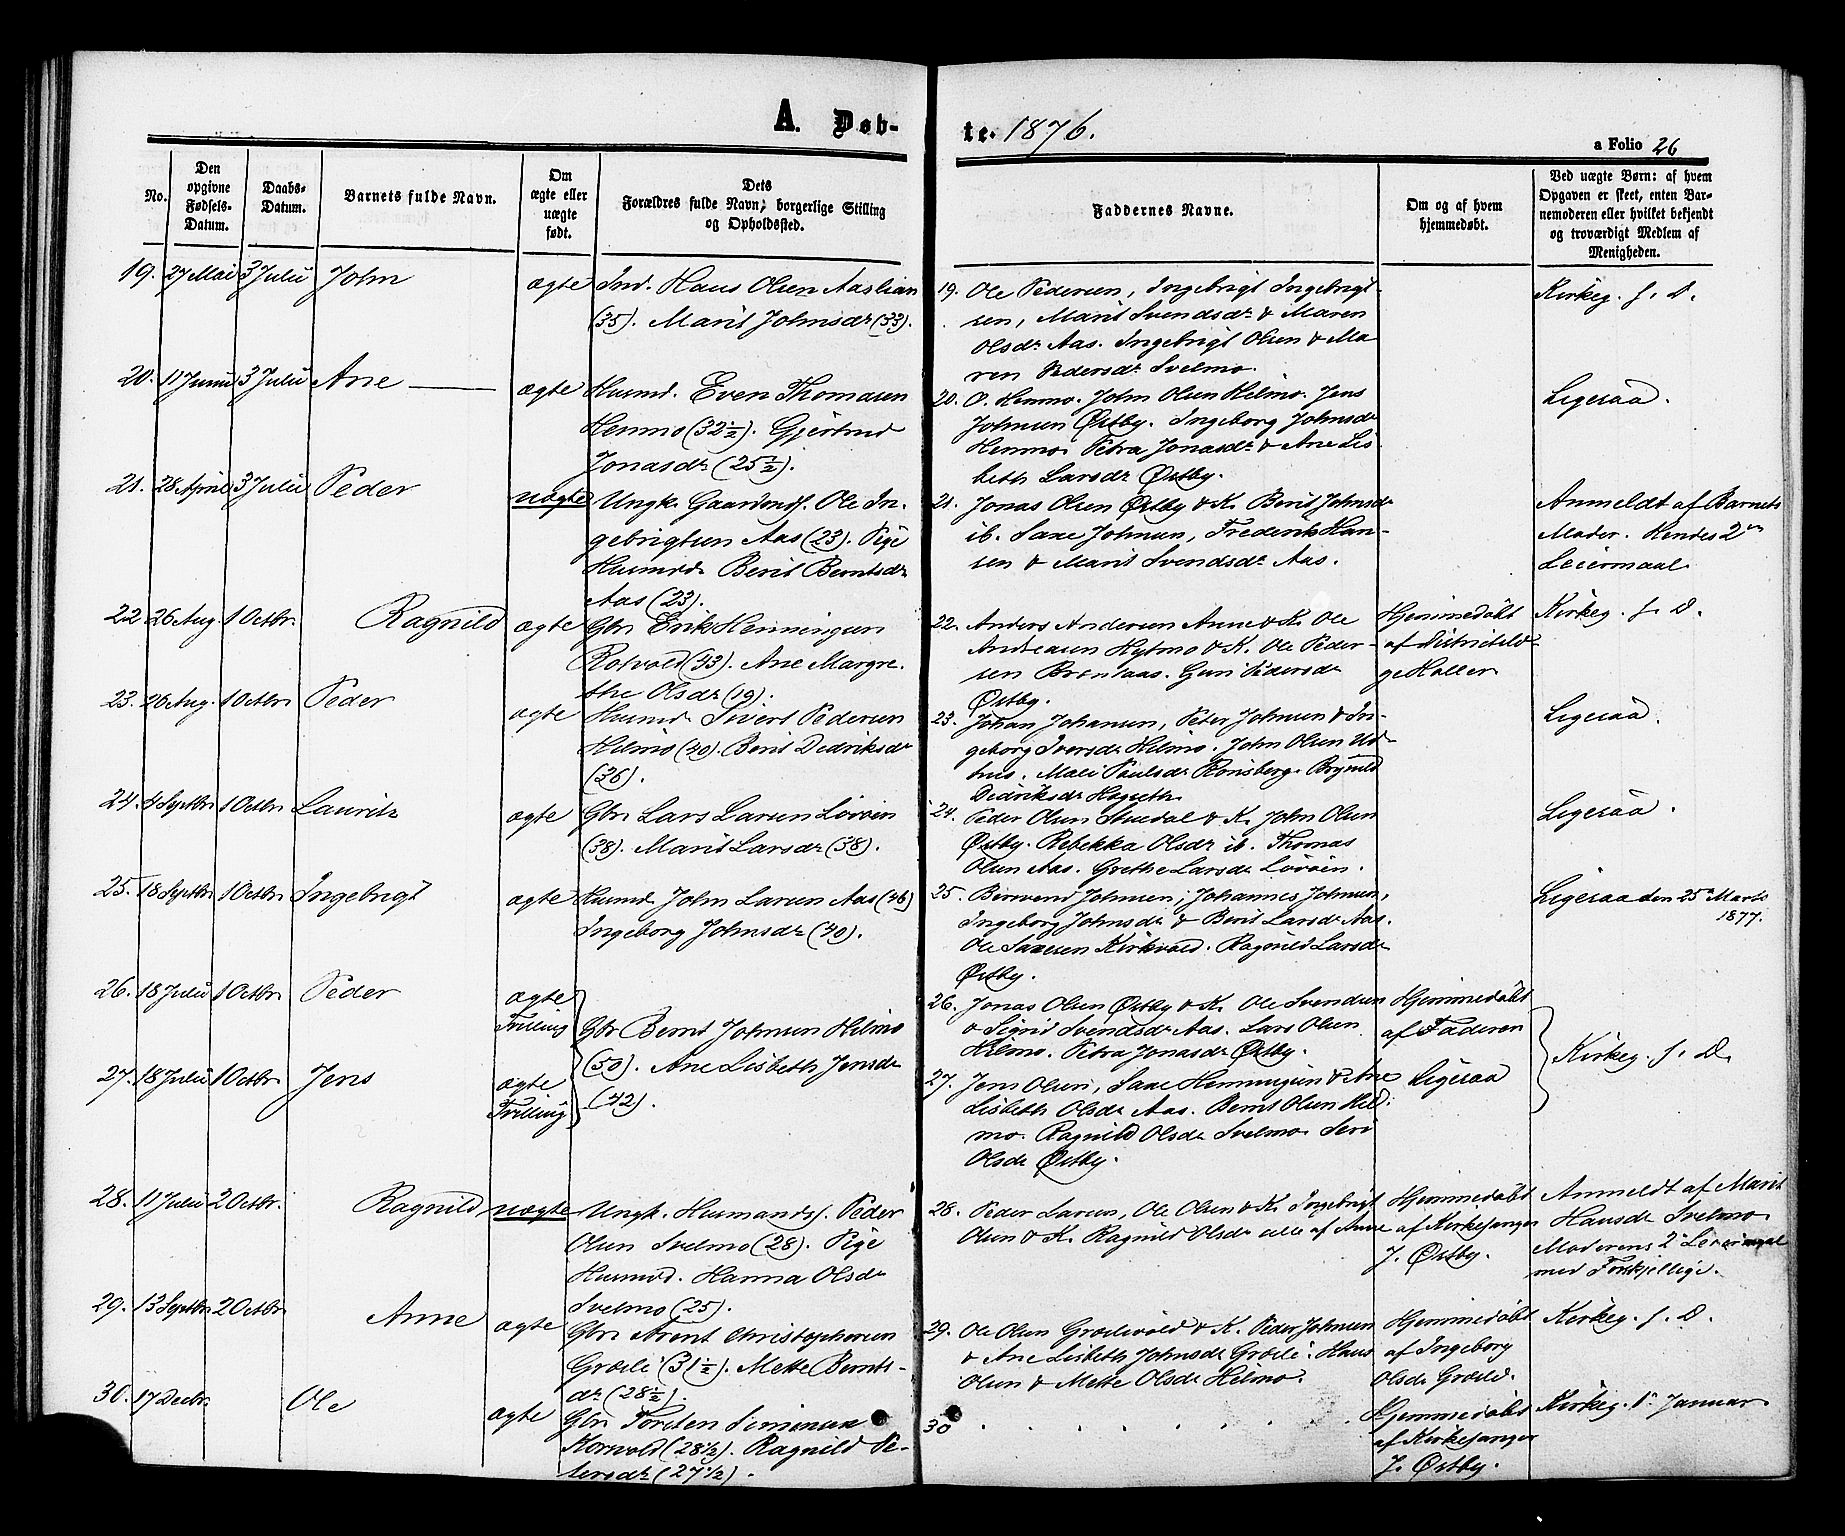 A. Døb-
te. 1876.
a Folio 26
No.
Den opgivne Fødsels-Datum.
Daabs-Datum.
Barnets fulde Navn.
Om ægte eller uægte født.
Dets Forældres fulde Navn, borgerlige Stilling og Opholdssted.
Faddernes Navne.
Om og af hvem hjemmedøbt.
Ved uægte Børn: af hvem Opgaven er skeet, enten Barnemoderen eller hvilket bekjendt og troværdigt Medlem af Menigheden.
19. 27 Mai 3 Juli John ægte Ind. Hans Olsen Aaslian
(35). Marit Johnsdr (33).
19. Ole Pedersen, Ingebrigt Ingebrigt-
sen, Marit Svendsdr & Maren
Olsdr Aas. Ingebrigt Olsen & Ma
ren Pedersdr Svelmo.
Kirkeg. s. D.
20. 11 Juni 3 Juli Ane ægte Husmd. Even Thomasen
Hemmo (32½). Gjertrud
Jonasdr (25½).
20. O. Hemmo. John Olsen Hilmo. Jens
Johnsen Østby. Ingeborg Johnsdr
Hemmo. Petra Jonasdr & Ane Lis-
beth Larsdr Østby.
Ligesaa.
21. 28 April 3 Juli Peder uægte Ungk. Gaardmds. Ole In-
gebrigtsen Aas (23). Pige
Husmdd. Berit Berntsdr
Aas (23).
21. Jonas Olsen Østby & K. Berit Johnsdr
ib. Saxe Johnsen, Frederik Han-
sen & Marit Svendsdr Aas.
Anmeldt af Barnets
Moder. Hendes 2den
Leiermaal
22. 26 Aug. 1 Octbr. Ragnild ægte Gbr. Erik Henningsen
Rotvold (33). Ane Margre-
the Olsdr (19).
22. Anders Andersen Anne & K. Ole
Andreasen Hytmo & K. Ole Peder-
sen Brenaas. Guri Pedersdr
Østby.
Hjemmedøbt
af Distritslæ-
ge Holler
Kirkeg. s. D.
23. 26 Aug. 1 Octbr. Peder ægte Husmd. Sivert Pedersen
Hilmo (40). Berit Dedriksdr
(36).
23. Johan Johansen, Peter Johnsen & In-
geborg Iversdr Hilmo. John Olsen Ud-
hus. Mali Paulsdr Rønsberg. Brynild
Didriksdr
Ligesaa.
24. 4 Septbr. 1 Octbr. Lauritz ægte Gbr. Lars Larsen Løvøen
(38). Marit Larsdr (38).
24. Peder Olsen Stuedal & K. John Olsen
Østby. Rebekka Olsdr ib. Thomas
Olsen Aas. Grethe Larsdr Løvøen.
Ligesaa.
25. 18 Septbr. 1 Octbr. Ingebrigt ægte Husmd. John Larsen Aas (46)
Ingeborg Johnsdr (40).
25. Bernend Johnsen, Johannes Johnsen,
Ingeborg Johnsdr & Berit Larsdr Aas.
Ole Saxesen Kirkvold. Ragnild Larsdr
Østby.
Ligesaa den 25de Marts
1877.
26. 18 Juli 1 Octbr. Peder ægte
Trilling
Gbr. Bernt Johnsen Hilmo
(50). Ane Lisbeth Jensdr
(42).
26. Jonas Olsen Østby & K. Ole Svendsen
& Sigrid Svendsdr Aas. Lars Olsen
Hilmo. Petra Jonasdr Østby.
Hjemmedøbt
af Faderen
Kirkeg. s. D.
27. 18 Juli 1 Octbr. Jens ægte
Trilling
27. Jens Olsen, Saxe Henningsen & Ane
Lisbeth Olsdr Aas. Bernt Olsen Hil-
mo. Ragnild Olsdr Svelmo. Seri
Olsdr Østby.
Ligesaa
28. 11 Juli 2 Octbr. Ragnild uægte Ungk. Husmands. Peder
Olsen Svelmo (28). Pige
Husmdd. Hanna Olsdr
Svelmo (25).
28. Peder Larsen, Ole Olsen & K. Ingebrigt
Olsen & K. Ragnild Olsdr alle af Anne
Hjemmedøbt
af Kirkesanger
J. Østby.
Anmeldt af Marit
Hansdr Svelmo.
Moderens 2det Leiermaal
med Forskjellige.
29. 13 Septbr. 2 Octbr. Anne ægte Gbr. Arent Christophersen
Græsli (31½). Mette Bernts-
dr (28½).
29. Ole Olsen Græslivold & K. Peder Johnsen
& Ane Lisbeth Johnsdr Græsli. Hans
Olsen & Mette Olsdr Hilmo.
Hjemmedøbt
af Ingeborg
Olsdr Græsli.
Kirkeg. s. D.
30. 17 Decbr. Ole ægte Gbr. Torsten Simonsen
Kornvold (28½). Ragnild Pe-
tersdr (27½).
30
Hjemmedøbt
af Kirkesanger
J. Østby.
Kirkeg. 1ste Januar